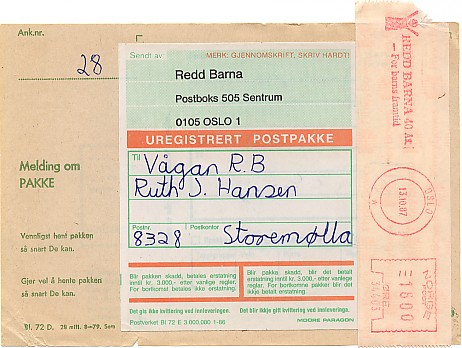 Ank.nr.
28
Melding om
PAKKE
Vennligst hent pakken
så snart De kan.
Gjer vel å hente pakken
så snart De kan.
Bl. 72 D. 28 mill. 8–79, Sem
Sendt av:
MERK: GJENNOMSKRIFT, SKRIV HARDT!
Redd Barna
Postboks 505 Sentrum
0105 OSLO 1
UREGISTRERT POSTPAKKE
Til
Vågan R.B
Ruth J. Hansen
Postnr. Postkontor
8328 Storemølla
Blir pakken skadd, betales erstatning
inntil kr. 3.000,- etter vanlige regler.
For bortkomst betales ikke erstatning.
Blir pakka skadd, blir det betalt
erstatning inntil kr. 3.000,- etter vanlege
reglar. For bortkomne pakker blir det
ikkje betalt erstatning.
Det gis ikke kvittering ved innleveringen.
Det blir ikkje gitt kvittering ved innleveringa.
Postverket Bl 72 E 3.000.000 1-86
MOORE PARAGON
REDD BARNA 40 ÅR
– For barns framtid
OSLO
13.10.87
NOREG
POST
1600